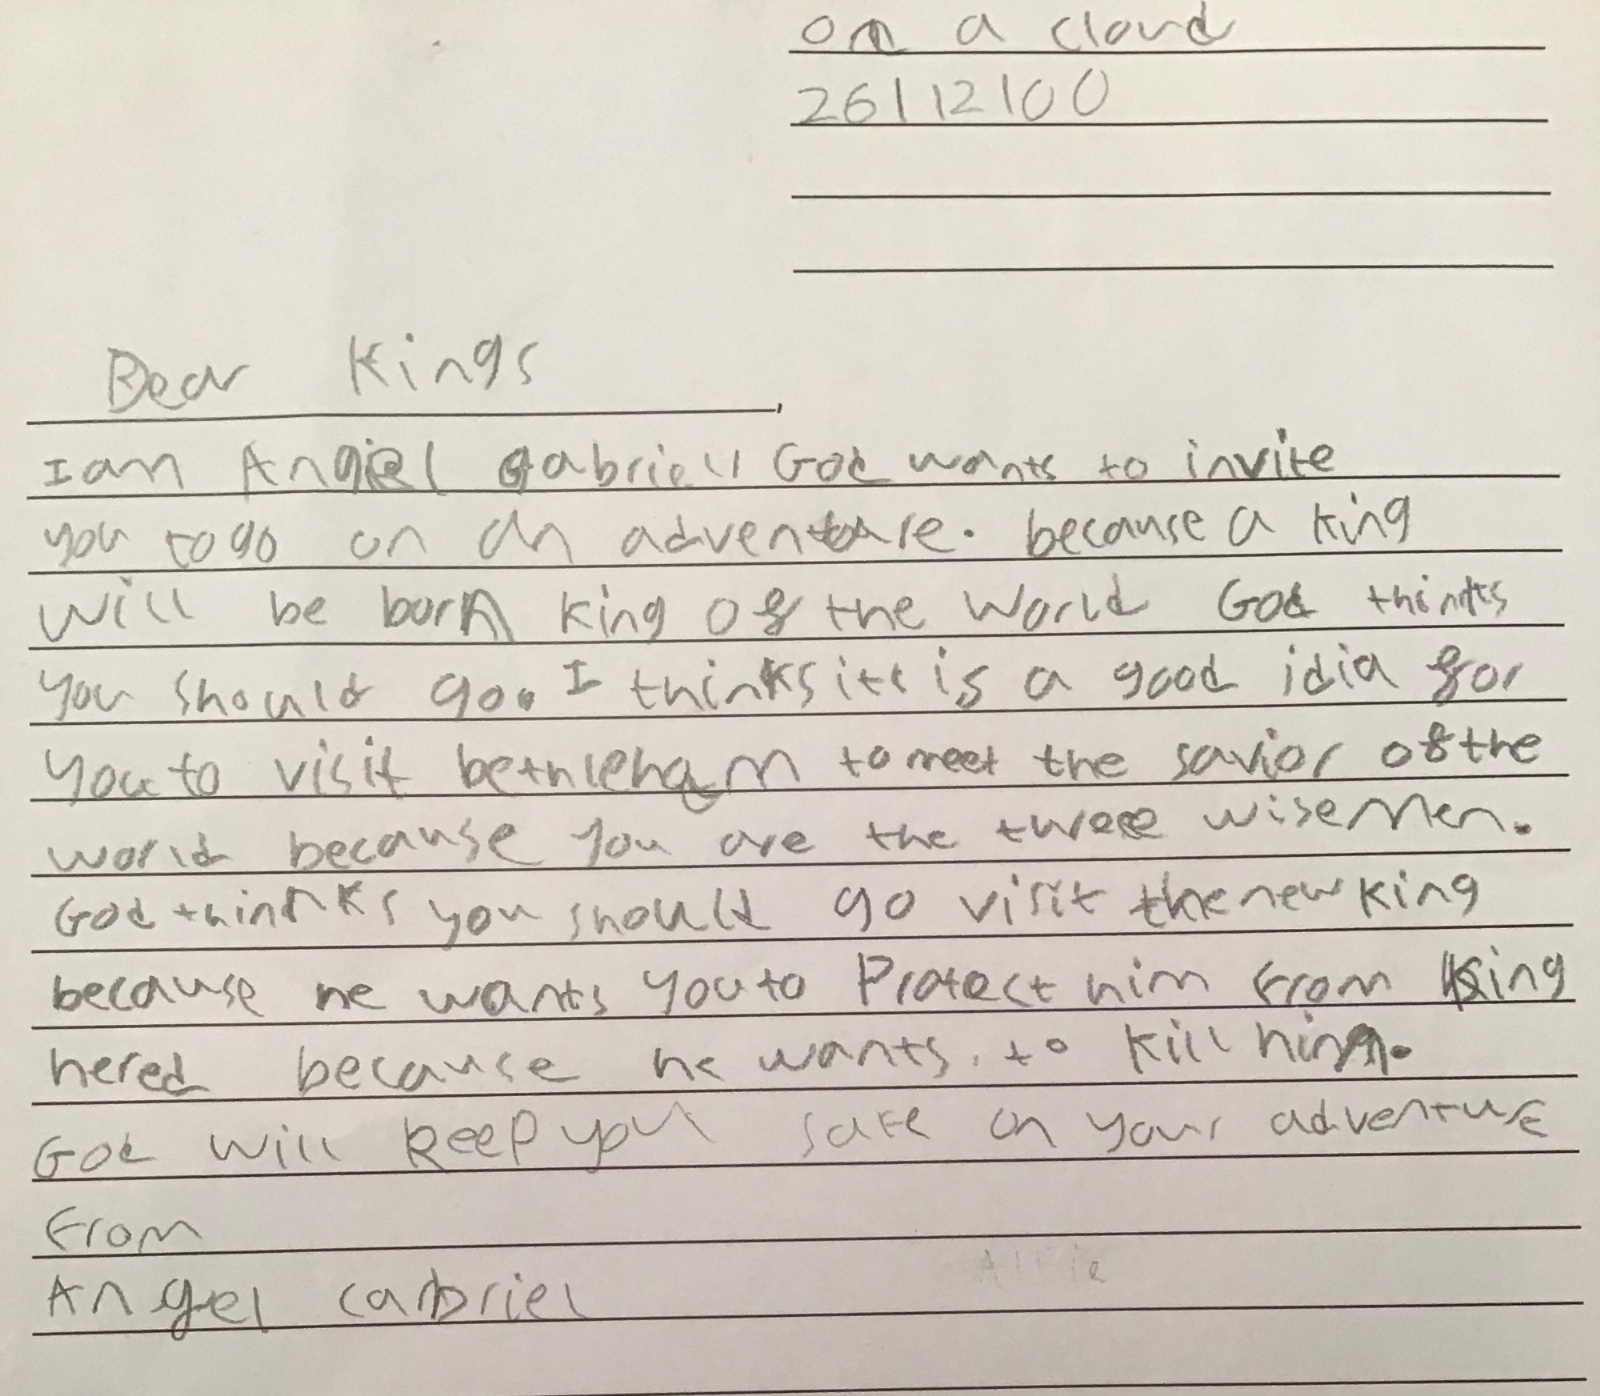 on a cloud
26/12/00
Dear Kings
I am Angiel Gabriell God wants to invite
you to go on an adventure. because a king
will be born king of the World God thinks
you should go. I thinks its is a good idia for
you to visit bethlehem to meet the savior of the
world because you are the three wise Men.
God thinks you should go visit the new king
because he wants you to Protect him from King
hered because he wants to kill him.
God will keep you safe on your adventure
From
Angel cabriel
Alfie